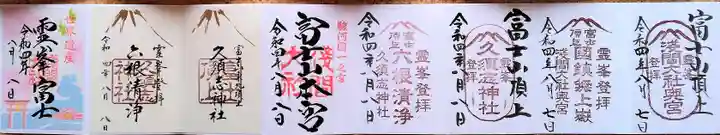 富士山頂上
登拝
浅間大社奥宮
令和四年八月七日
富士頂上
霊峯登拝
国鎮無上嶽
令和四年八月七日
富士山頂上
登拝
久須志神社
令和四年八月八日
富士頂上
霊峯登拝
六根清浄
久須志神社
令和四年八月八日
駿河国一之宮
富士山本宮
浅間大社
令和四年八月八日
富士山頂上
久須志神社
令和四年八月八日
霊峯登拝
六根清浄
令和四年八月八日
世界遺産
霊峯富士
令和四年
八月八日